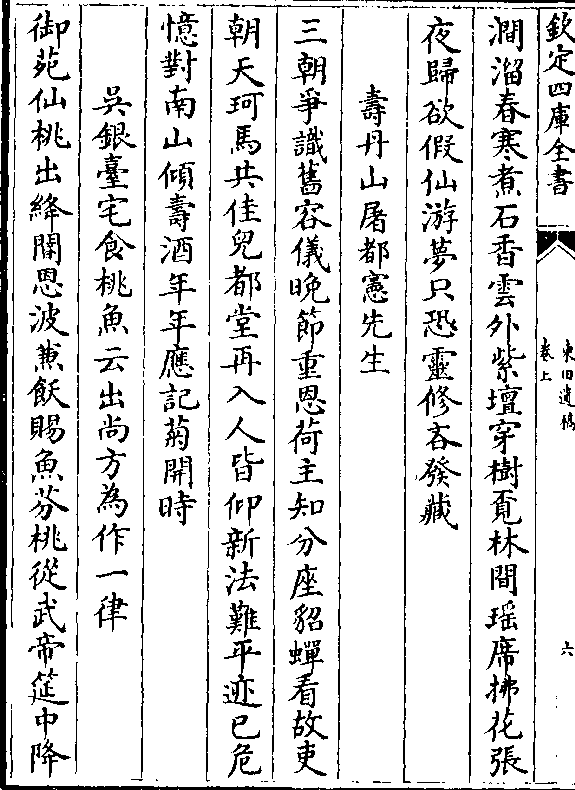 欽定四庫全書
東田遺稿
卷上
六
澗溜春寒煮石香雲外紫壇穿樹覔林間瑶席拂花張
夜歸欲假仙游夢只恐靈修吝發藏
壽丹山屠都憲先生
三朝爭識舊容儀晚節重恩荷主知分座貂蟬看故吏
朝天珂馬共佳兒都堂再入人皆仰新法難平迹已危
憶對南山傾壽酒年年應記菊開時
吳銀臺宅食桃魚云出尚方為作一律
御苑仙桃出絳闗恩波蕉飫賜魚芬桃從武帝筵中降